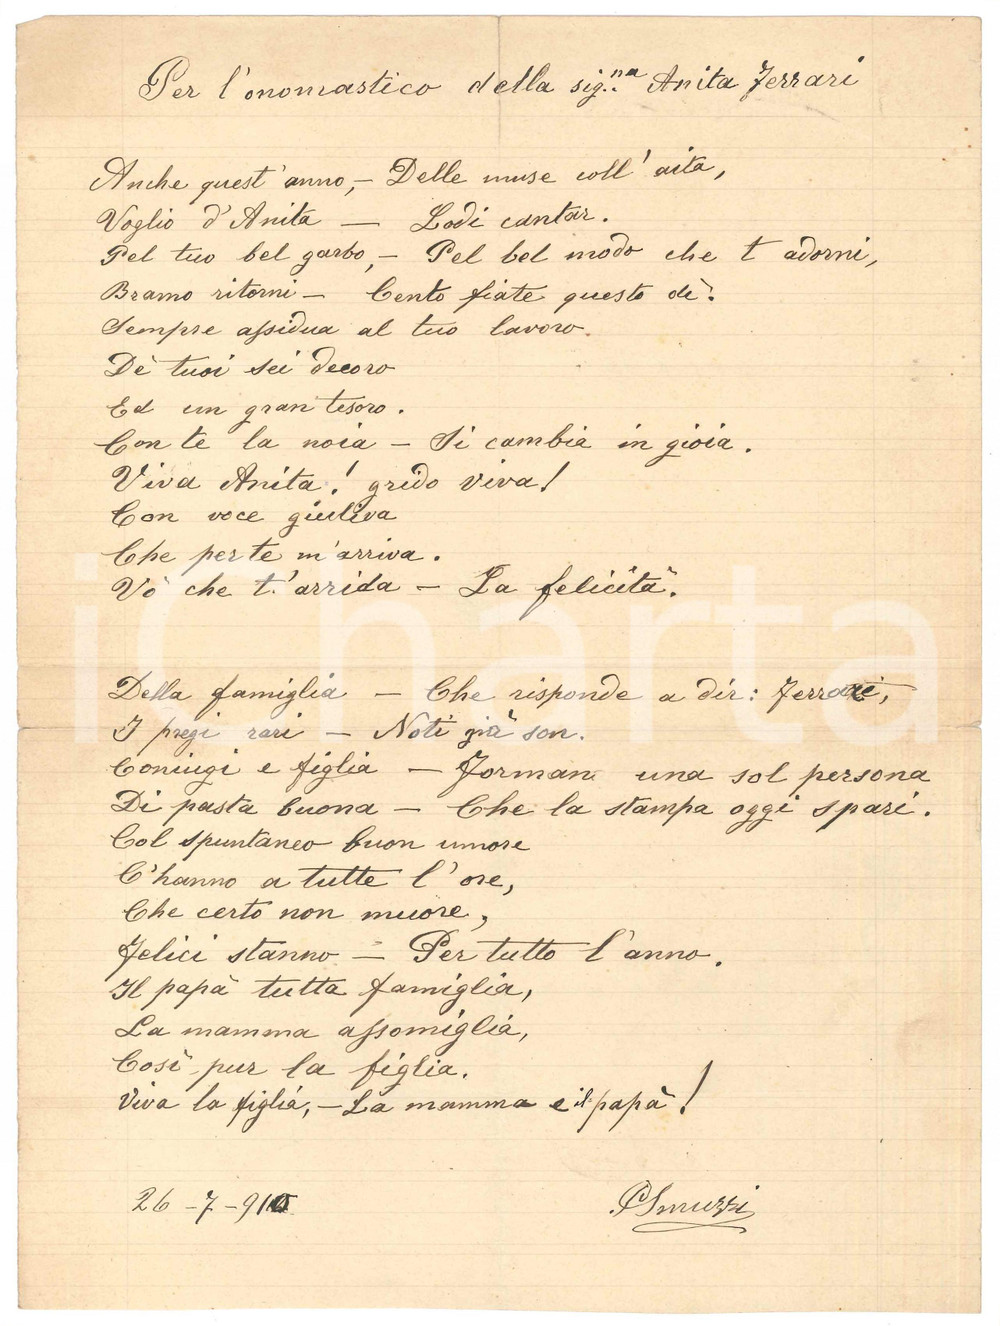 Per l'onomastico della sig.na Anita Ferrari
Anche quest'anno, – Delle muse coll'aita,
Voglio d'Anita – Lodi cantar.
Pel tuo bel garbo, – Pel bel modo che t adorni,
Bramo ritorni – Cento fiate questo dì.
Sempre assidua al tuo lavoro
De' tuoi sei decoro
Ed un gran tesoro.
Con te la noia – Si cambia in gioia.
Viva Anita! grido viva!
Con voce giuliva
Che per te m'arriva.
Vò che t'arrida – La felicità.
Della famiglia – Che risponde a dir: Ferrari,
I pregi rari – Noti già son.
Coniugi e figlia – Forman una sol persona
Di pasta buona – Che la stampa oggi sparì.
Col spuntaneo buon umore
C'hanno a tutte l'ore,
Che certo non muore,
Felici stanno – Per tutto l'anno.
Il papà tutta famiglia,
La mamma assomiglia,
Così pur la figlia.
Viva la figlia, – La mamma e il papà!
26 - 7 - 910
iCharta